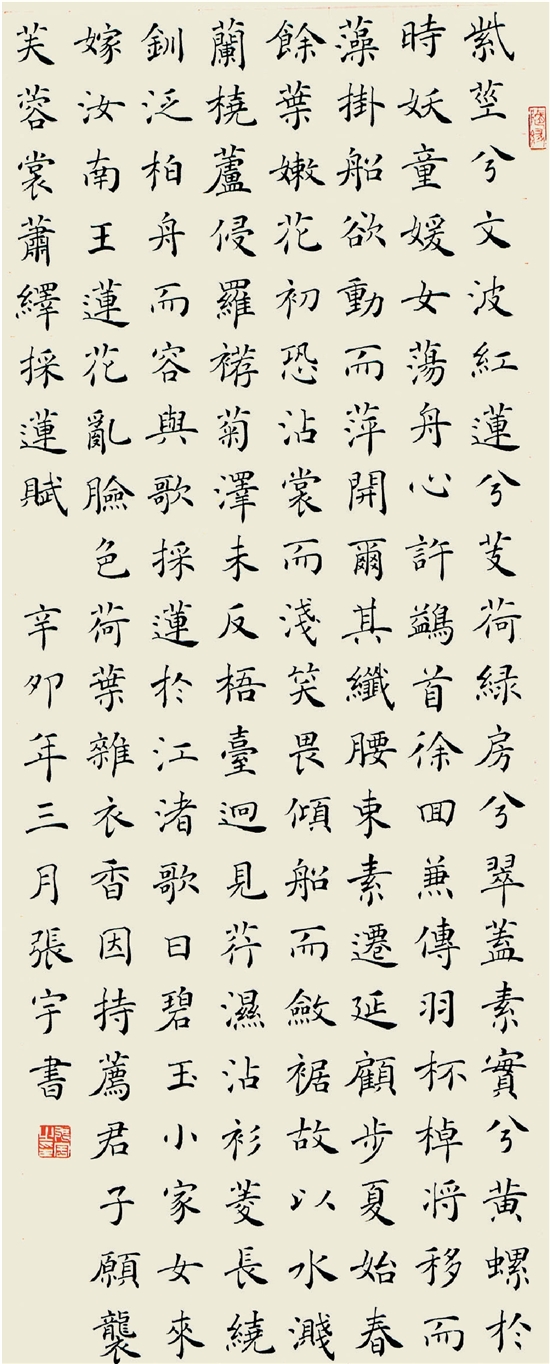 紫莖兮文波紅蓮兮芰荷綠房兮翠蓋素實兮黃螺於
時妖童媛女蕩舟心許鷁首徐回兼傳羽杯棹將移而
藻掛船欲動而萍開爾其纖腰束素遷延顧步夏始春
餘葉嫩花初恐沾裳而淺笑畏傾船而斂裾故以水濺
蘭橈蘆侵羅𧛾菊澤未反梧臺迥見荇濕沾衫菱長繞
釧泛柏舟而容與歌採蓮於江渚歌曰碧玉小家女來
嫁汝南王蓮花亂臉色荷葉雜衣香因持薦君子願襲
芙蓉裳蕭繹採蓮賦 辛卯年三月張宇書